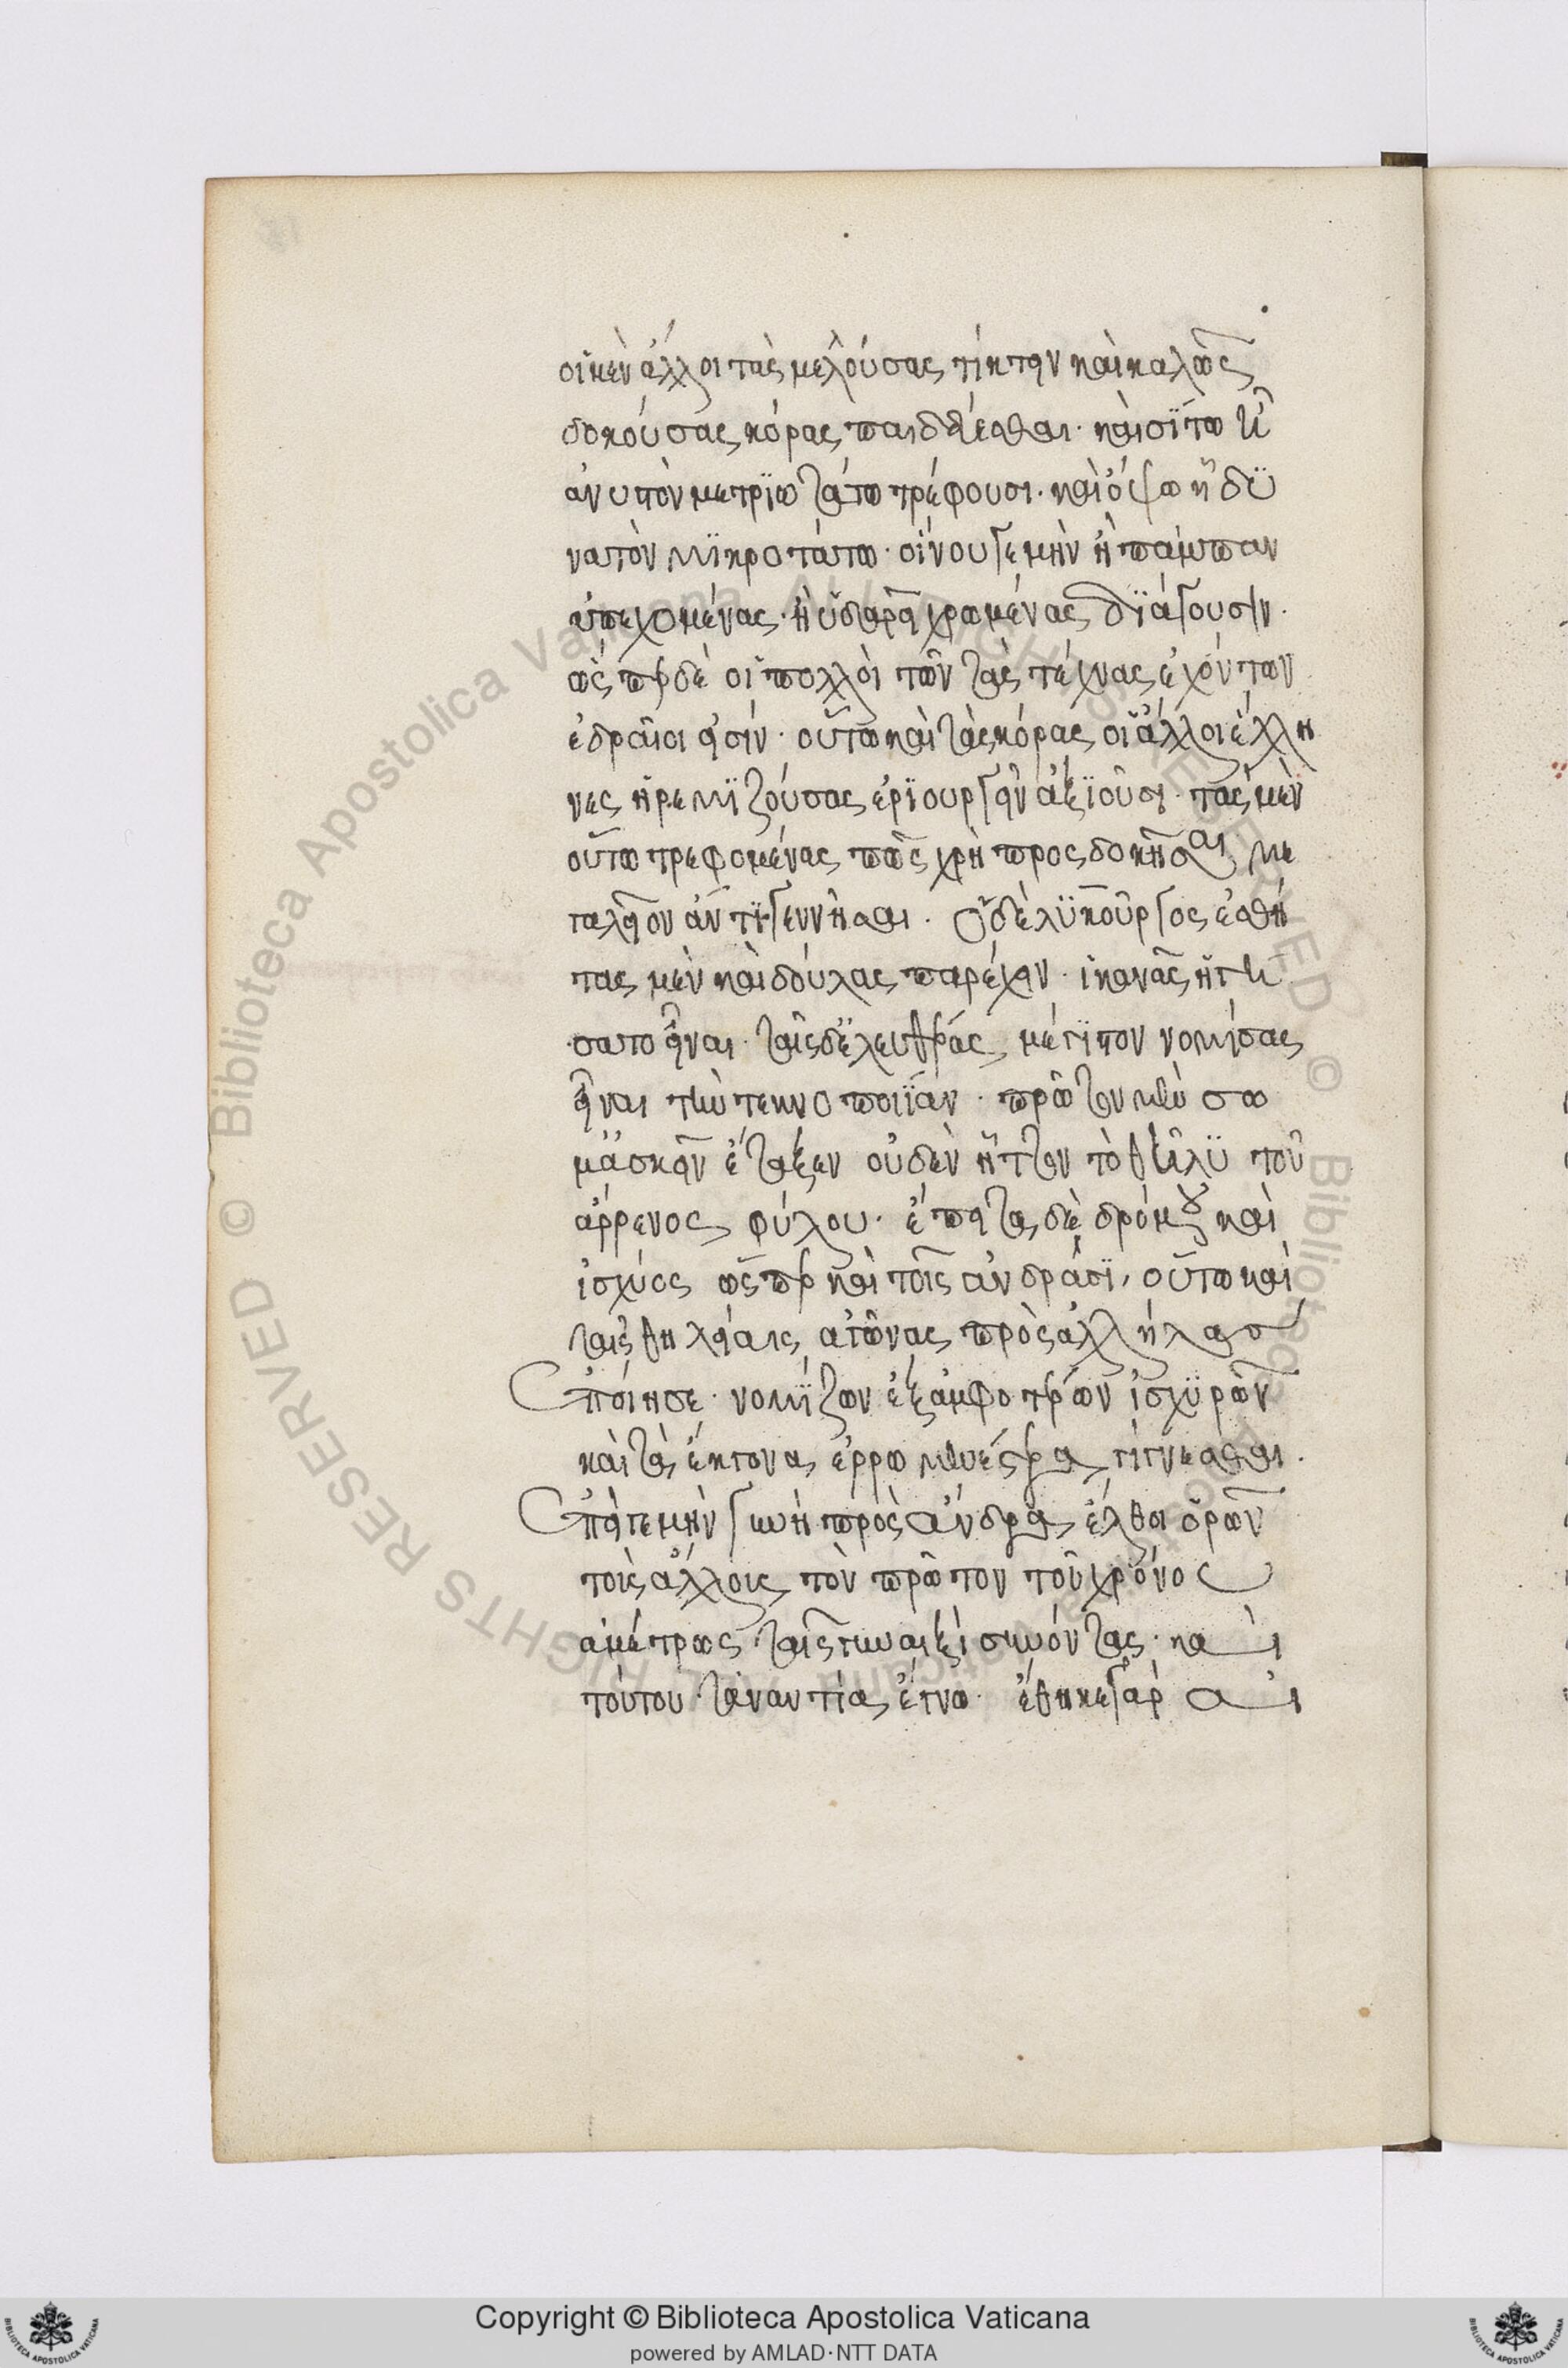 οἱ μὲν ἄλλοι τὰς μελούσας τίκτειν καὶ καλῶς
δοκούσας κόρας παιδεύεσθαι· καὶ σϊτω ἧ
ἀνυτὸν μετρϊωτάτω τρέφουσι· καὶ ὄψω ἧ δϋ
νατὸν μϊκροτάτω· οἴνου γε μὴν ἢ πάμπαν
ἀπεχομένας· ἢ ὑδαρεῖ χρωμένας δϊάγουσιν.
ὥσπερ δὲ οἱ πολλοὶ τῶν τὰς τέχνας ἐχόντων
ἑδραῖοι εἰσίν· οὕτω καὶ τὰς κόρας οἱ ἄλλοι ἕλλη
νες ἠρεμϊζούσας ἐρϊουργεῖν ἀξϊοῦσι· τὰς μὲν
οὕτω τρεφομένας πῶς χρὴ προσδοκῆσαι με
γαλεῖον ἄν τϊ γεννῆσθαι. ὁ δὲ λϋκοῦργος ἐσθῆ
τας μὲν καὶ δούλας παρέχειν· ἱκανὰς ἡγή
σατο εἶναι· ταῖς δ' ἐλευθέρας μέγϊστον νομίσας
εἶναι τὴν τεκνοποιΐαν· πρῶτον μὲν σω
μασκεῖν ἔταξεν οὐδὲν ἧττον τὸ θῆλϋ τοῦ
ἄρρενος φύλου· ἔπειτα δὲ δρόμου καὶ
ἰσχύος ὥσπερ καὶ τοῖς ἀνδράσϊ, οὕτω καὶ
ταῖς θηλείαις ἀγῶνας πρὸς ἀλλήλας
ἐποίησε· νομϊζων ἐξ ἀμφοτέρων ἰσχϋρῶν
καὶ τὰ ἔκγονα ἐρρωμενέστερα γίγνεσθαι.
ἐπεί γε μὴν γυνὴ πρὸς ἄνδρα ἔλθοι ὁρῶν
τοὶς ἄλλοις τὸν πρῶτον τοῦ χρόνος
ἀμέτρως ταῖς γυναιξὶ συνόντας· καὶ
τούτου τἀναντία ἔγνω· ἔθηκε γὰρ αἰ